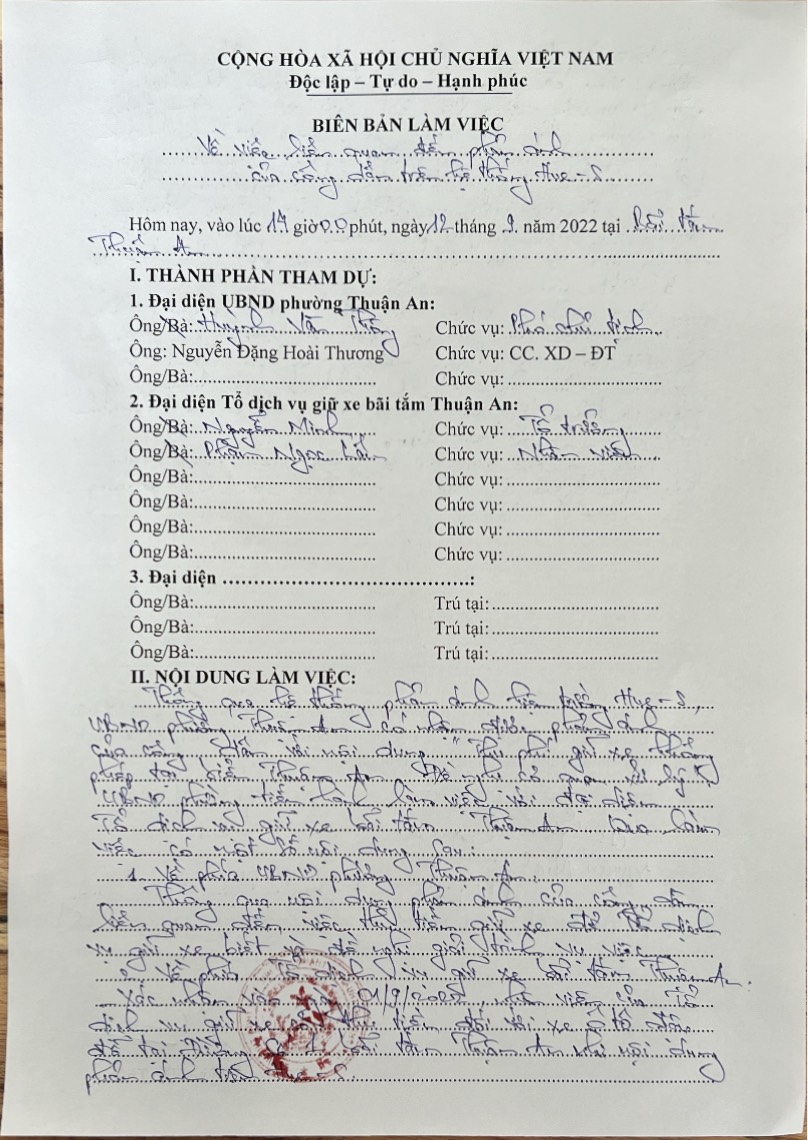 CỘNG HÒA XÃ HỘI CHỦ NGHĨA VIỆT NAM
Độc lập – Tự do – Hạnh phúc
BIÊN BẢN LÀM VIỆC
Về việc liên quan đến phản ánh
của công dân trên hệ thống Hue-S
Hôm nay, vào lúc 14 giờ 00 phút, ngày 12 tháng 9 năm 2022 tại bãi tắm
Thuận An
I. THÀNH PHẦN THAM DỰ:
1. Đại diện UBND phường Thuận An:
Ông/Bà: Huỳnh Văn Chức vụ: Phó chủ tịch
Ông: Nguyễn Đặng Hoài Thương Chức vụ: CC. XD – ĐT
Ông/Bà: Chức vụ:
2. Đại diện Tổ dịch vụ giữ xe bãi tắm Thuận An:
Ông/Bà: Nguyễn Minh Chức vụ: Tổ trưởng
Ông/Bà: Phạm Ngọc Chức vụ: Nhân viên
Ông/Bà: Chức vụ:
Ông/Bà: Chức vụ:
Ông/Bà: Chức vụ:
Ông/Bà: Chức vụ:
3. Đại diện :
Ông/Bà: Trú tại:
Ông/Bà: Trú tại:
Ông/Bà: Trú tại:
II. NỘI DUNG LÀM VIỆC:
Thông qua hệ thống phản ánh hiện trường Hue-S,
UBND phường Thuận An có nhận được phản ánh
của công dân với nội dung "Thu phí giữ xe không
phép tại biển Thuận An. Đề nghị cơ quan xử lý".
UBND phường tiến hành làm việc với đại diện
Tổ dịch vụ giữ xe bãi tắm Thuận An. Qua làm
việc có một số nội dung sau:
1. Về phía UBND phường Thuận An:
Thông qua nội dung phản ánh của công dân
liên quan đến việc thu tiền giữ xe để Tổ dịch
vụ giữ xe biết và đề nghị giải trình vụ việc.
2. Về phía Tổ dịch vụ giữ xe bãi tắm Thuận An.
- Xác nhận vào ngày 01/9/2022, nhân viên của Tổ
dịch vụ giữ xe có thu tiền đối với xe ô tô đậu
đỗ tại bãi tắm Thuận An như nội dung
phản ánh trên Hue-S.